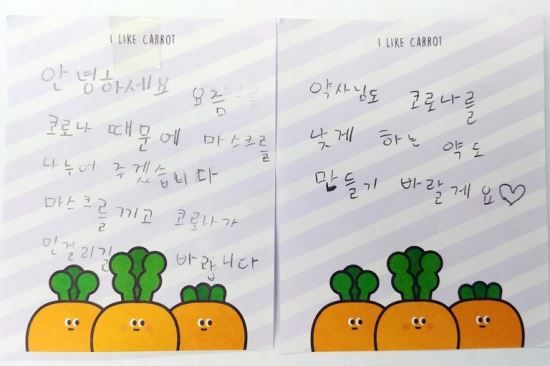 I LIKE CARROT
안녕하세요 요즘
코로나 때문에 마스크를
나누어 주겠습니다
마스크를 끼고 코로나가
안걸리길 바랍니다
I LIKE CARROT
약사님도 코로나를
낫게 하는 약도
만들기 바랄게요♡